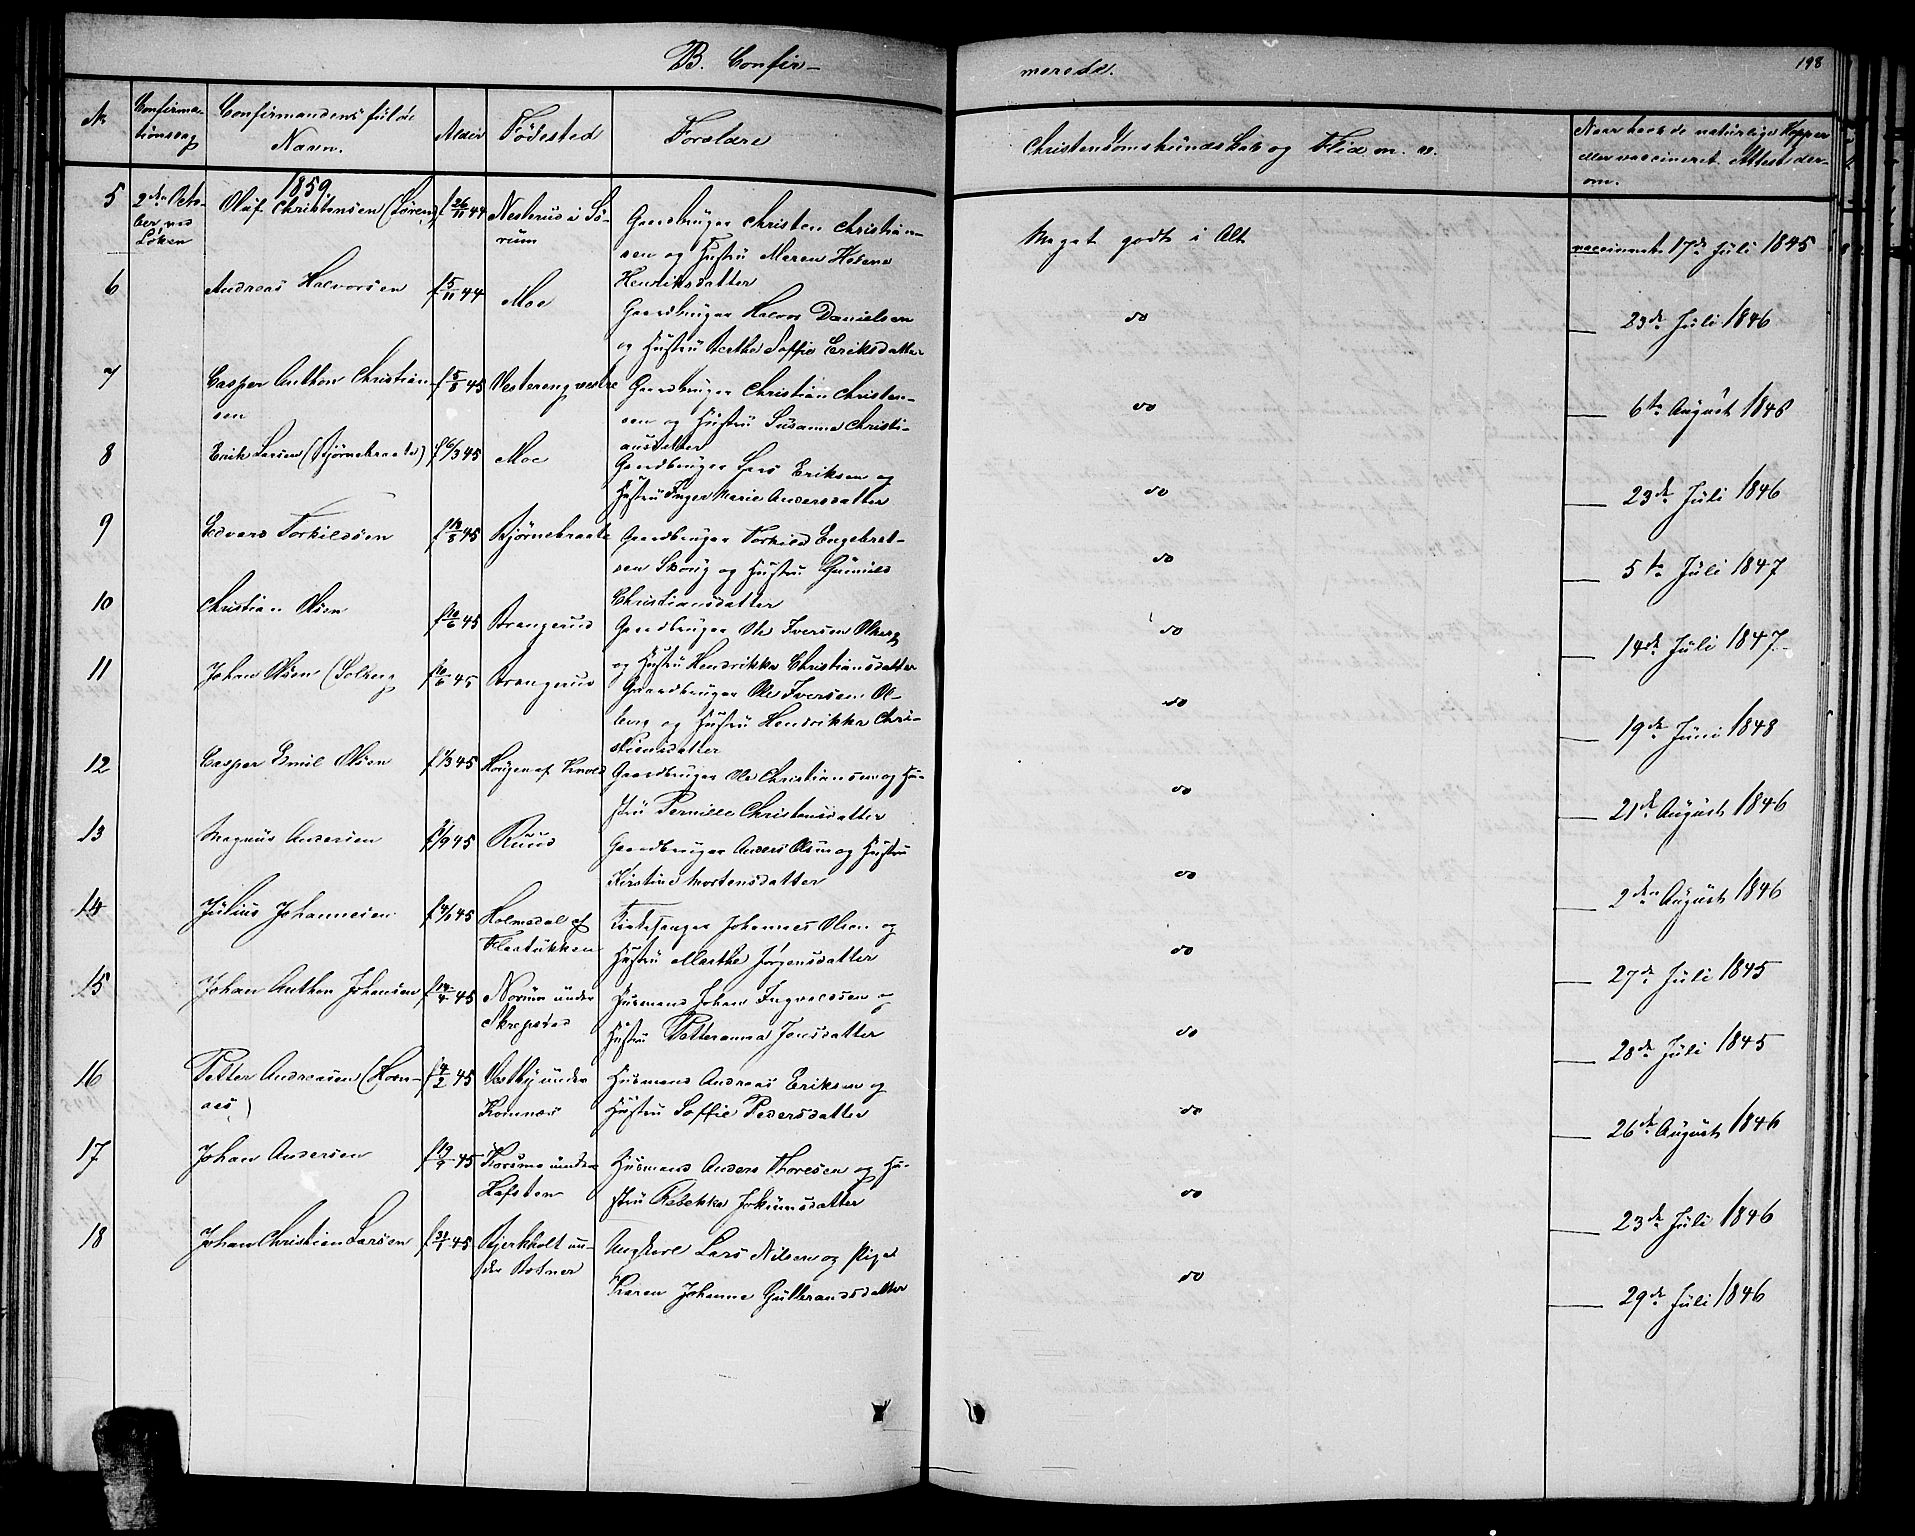 B. Confir-
merede.
198
№
Confirma-
tionsdag
Confirmandens fulde
Navn.
Alder
Fødested
Forældre
Christendomskundskab og Flid m. v.
Naar havde naturlige Kopper
eller vaccineret. Attester der-
om.
1859.
5 2den Octo-
ber ved
Løken
Oluf Christensen (Søreng) f 26/11 44 Nesterud i Sø-
rum
Gaardbruger Christen Christian-
sen og Hustru Maren Helene
Henriksdatter
Meget godt i Alt
vaccineret 17de Juli 1845
6 Andreas Halvorsen f 5/11 44 Moe
Gaardbruger Halvor Danielsen
og Hustru Berthe Soffie Eriksdatter
do
— 23de Juli 1846
7 Casper Anthon Christian-
sen
f 5/8 45 Vestereng vestre
Gaardbruger Christian Christen-
sen og Hustru Susanne Christi-
ansdatter
do
— 6te August 1848
8 Erik Larsen (Bjørnebraate) f 6/3 45 Moe
Gaardbruger Lars Eriksen og
Hustru Inger Marie Andersdatter
do
— 23de Juli 1846
9 Edvard Torkildsen f 18/8 45 Bjørnebraate
Gaardbruger Torkild Engebret-
sen Skoug og Hustru Gunild
Christiansdatter
do
— 5te Juli 1847
10 Christian Olsen f 10/6 45 Brangerud
Gaardbruger Ole Iversen Olberg
og Hustru Hendrikke Christiansdatter
do
— 14de Juli 1847
11 Johan Olsen (Solberg f 10/6 45 Brangerud
Gaardbruger Ole Iversen Ol-
berg og Hustru Hendrikke Chri-
stiansdatter
do
— 19de Juni 1848
12 Casper Emil Olsen f 1/3 45 Haugen af Knold
Gaardbruger Ole Christiansen og Hu-
stru Pernille Christensdatter
do
— 21de August 1846
13 Magnus Andersen f 1/9 45 Ruud
Gaardbruger Anders Olsen og Hustru
Kirstine Mortensdatter
do
— 2den August 1846
14 Julius Johannesen 45 Holmsdal af
Johannes Olsen og
Hustru Marthe Jørgensdatter
do
— 27de Juli 1845
15 Johan Anthon Johansen f 14/4 45 Norum under
Skrepstad
Husmand Johan Ingvaldsen og
Hustru Petteranna Jonsdatter
do
— 28de Juli 1845
16 Petter Andreasen (Kom-
næs)
f 4/2 45 Vestby under
Komnæs
Husmand Andreas Eriksen og
Hustru Soffie Pedersdatter
do
— 26de August 1846
17 Johan Andersen 45 Korsmo under
Hafsten
Husmand Anders Thoresen og Hu-
stru Rebekka Jokumsdatter
do
— 23de Juli 1846
18 Johan Christian Larsen f 31/1 45 Bjerkholt un-
der Botner
Ungkarl Lars Nilsen og Pige
Karen Johanne Gulbrandsdatter
do
— 29de Juli 1846